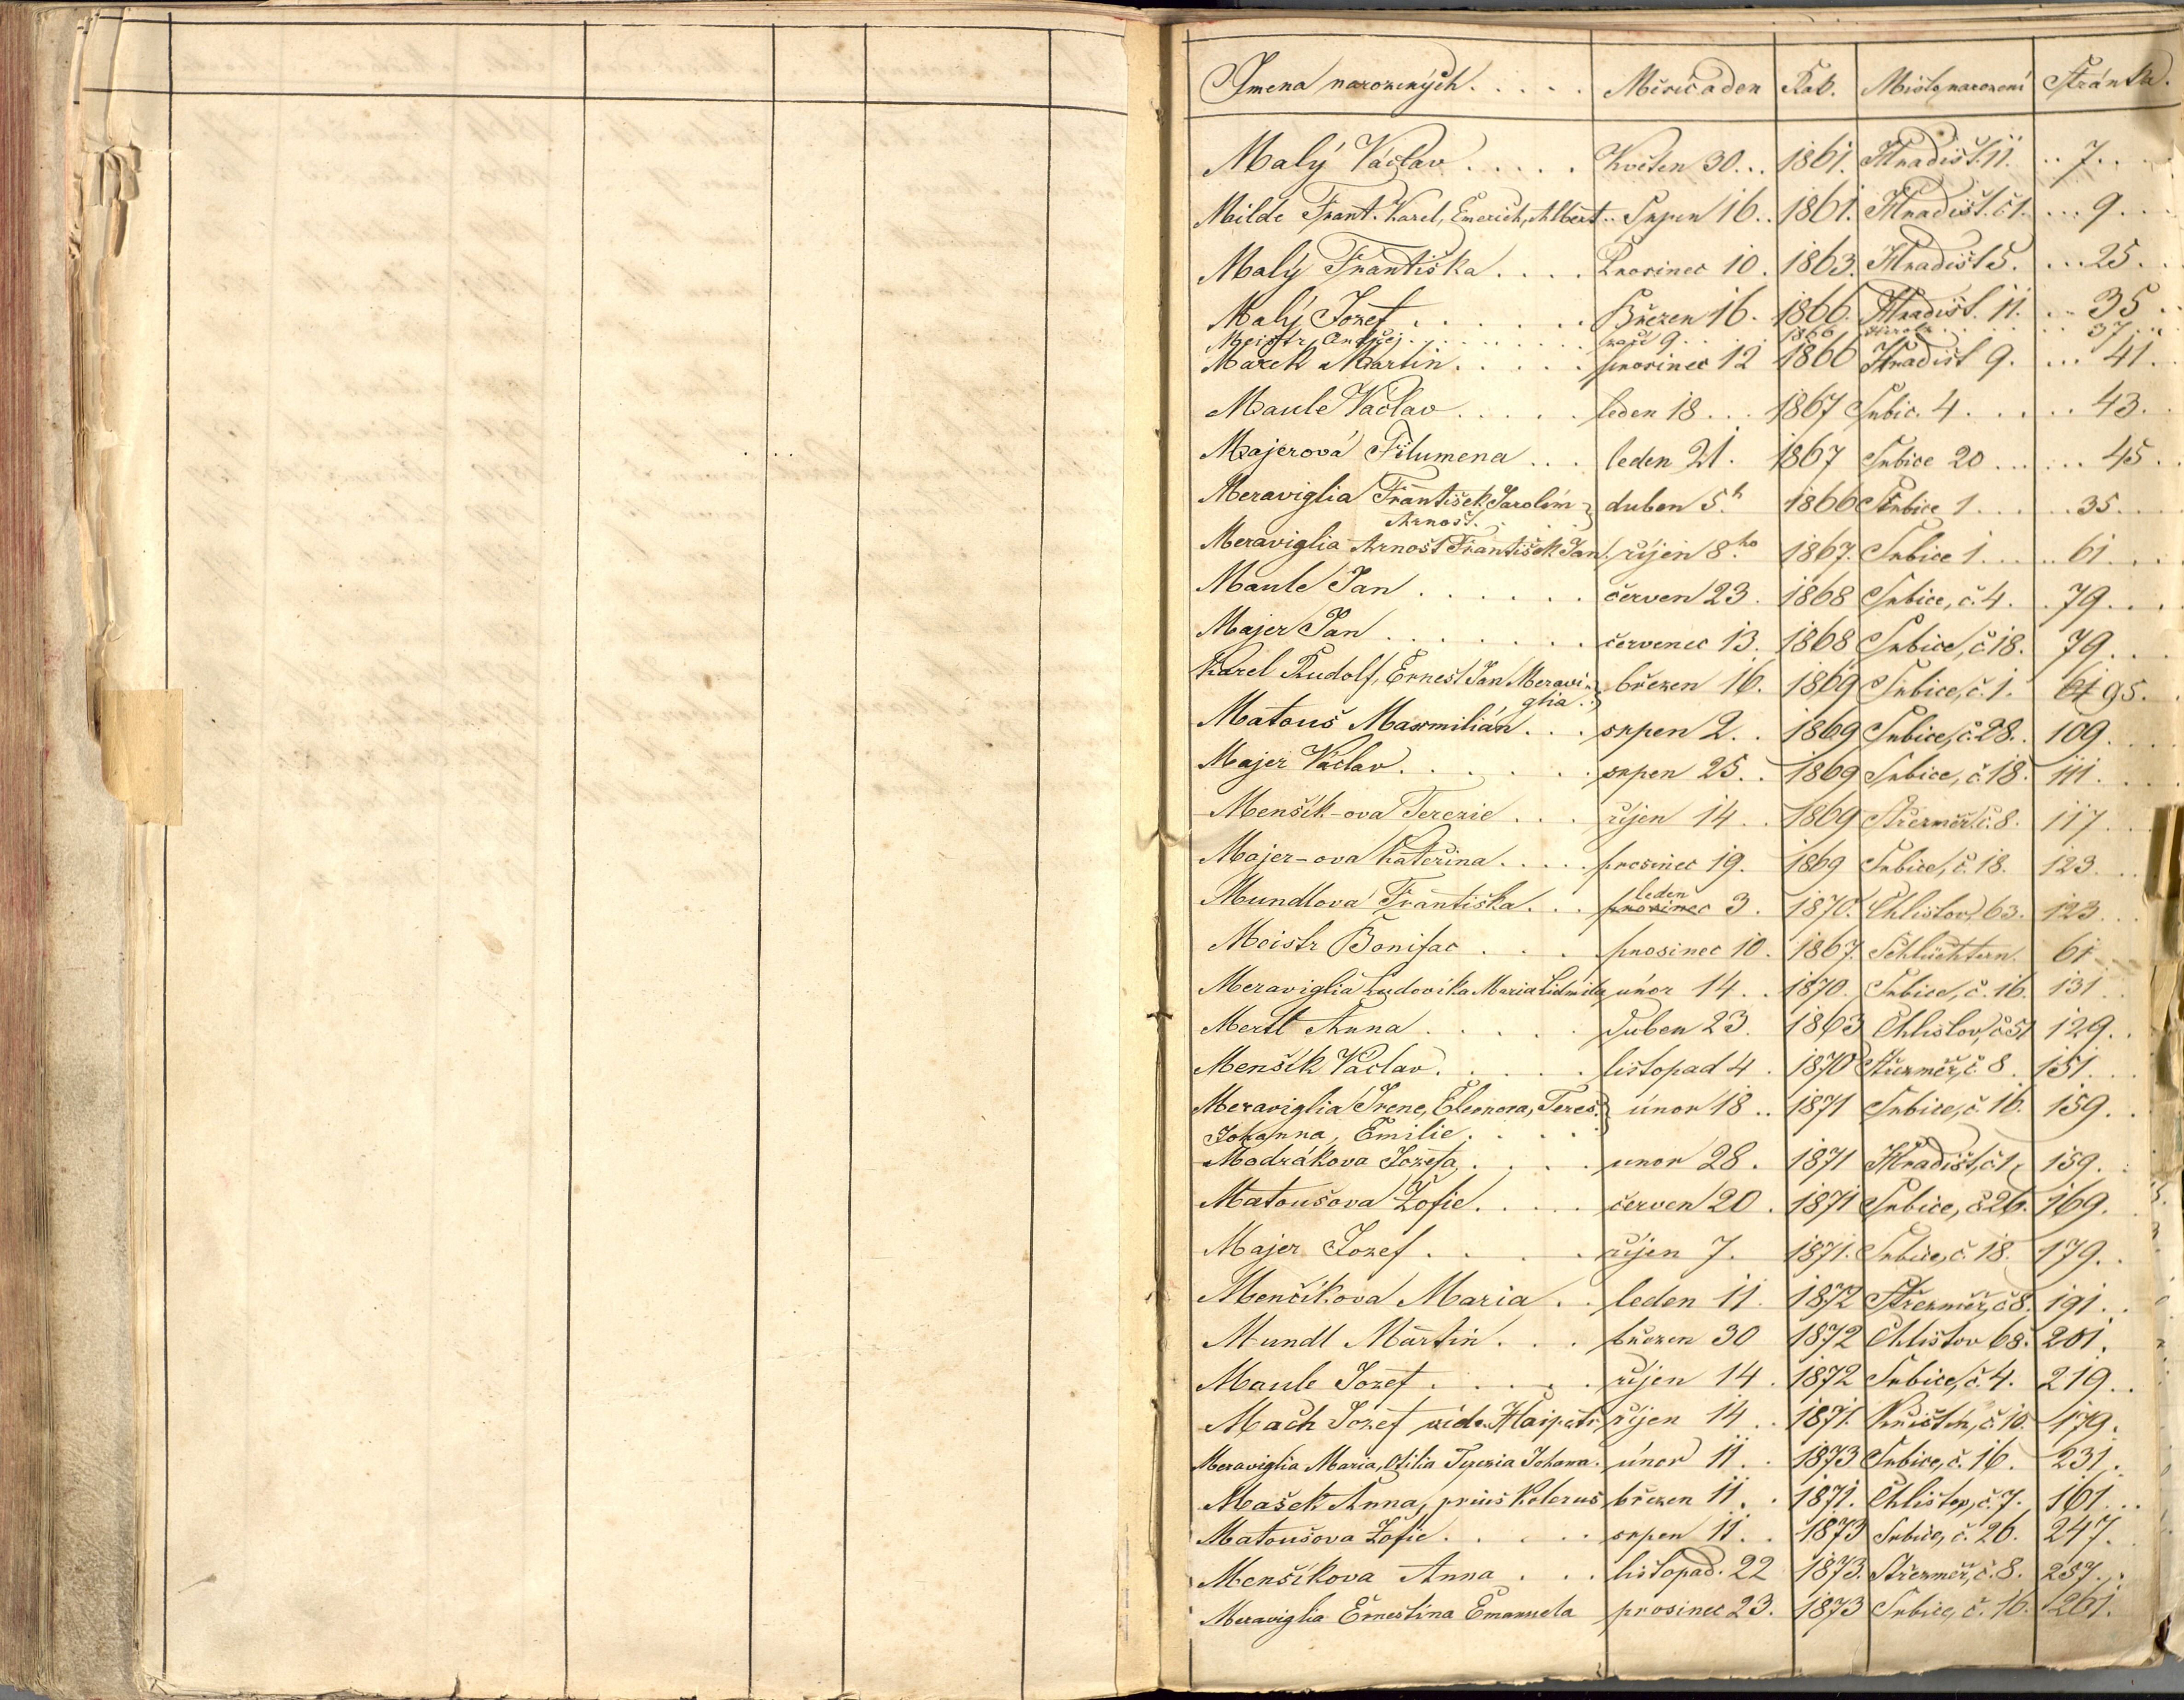 Jmena narozených. . . . . Měsíc a den Rok. Místo narození Stránka.
Malý Václav . . . . . Květen 30... 1861. Hradišt. 11. .. 7. . .
Milde Frant. Karel, Emerich, Albert .. Srpen 16.. 1861. Hradišt. č 1. ... 9. . .
Malý Františka . . . . Prosinec 10. 1863. Hradišt 5. ... 25. .
Malý Jozef . . . . . . Březen 16. 1866. Hradišt. 11. .. 35 . .
Meistr Ondřej . . . . . . září 9 . . 1866 . . . 37 . .
Marek Martin . . . . . prosinec 12 1866 Hradišt 9. ... 41. .
Maule Václav . . . . . leden 18 ... 1867 Srbic. 4 . . . . . 43.
Majerová Filumena ... leden 21. 1867 Srbice 20 ... ... 45 .
Meraviglia František Jarolím duben 5. 1866 Srbice 1 . . . . . 35. . .
Arnošt.
Meraviglia Arnošt František Jan. říjen 8.ho 1867. Srbice 1 . . . . . 61 . . .
Maule Jan . . . . . . červen 23. 1868 Srbice, č. 4. . 79. . .
Majer Jan . . . . . . . červenec 13. 1868 Srbice, č 18. 79. . .
Karel Rudolf, Ernest Jan Meravi- březen 16. 1869 Srbice, č. 1. 61 95.
glia . .
Matouš Maxmilián . . . srpen 2. . 1869 Srbice, č. 28. . 109. . .
Majer Václav . . . . . . srpen 25. . 1869 Srbice, č. 18. 111. . . .
Menšík-ova Terezie . . . říjen 14 . . 1869 Střezměř. č. 8. 117. . .
Majer-ova Kateřina . . . . . prosinec 19. 1869 Srbice, č. 18. 123. . .
leden
Mundlova Františka . . . prosinec 3. 1870. Chlistov 63. 123. . .
Meistr Bonifac . . . prosinec 10. 1867. Schlüchtern. 61
Meraviglia Ludovika Maria Lidmila únor 14. . 1870. Srbice, č. 16. 131 . .
Mertl Anna . . . . . Duben 23. 1863 Chlistov, č 51 129. .
Menšík Václav . . . . . listopad 4 . 1870 Střezměř, č. 8. 151. . .
Meraviglia Irene, Eleonora, Teres. únor 18 .. 1871 Srbice, č. 16. 159. .
Johanna, Emilie . . . .
Modrákova Jozefa . . . . unor 28. 1871 Hradišt, č 1, 159. .
Matoušova Žofie . . . . . červen 20 . 1871 Srbice, č 26. 169.
Majer Jozef . . . . . říjen 7. 1871. Srbice, č. 18. 179. .
Menčíkova Maria . . leden 11. 1872 Střezměř, č 8. 191. .
Mundl Martin . . . březen 30 1872 Chlistov 68. 201.
Maule Jozef . . . . . říjen 14 . 1872 Srbice, č. 4. 219. .
Mach Jozef vide říjen 14 . . 1871. č. 10. 179.
Meraviglia Maria, Otilia Terezia Johana. únor 11 . . 1873 Srbice, č. 16. 231.
Mašek Anna, prius Kolerus březen 11. . 1871. Chlistov, č. 7. 161 . . .
Matoušova Žofie . . . . . srpen 11 . . 1873 Srbice, č. 26. 247.
Menšíkova Anna . . . listopad. 22 1873. Střezměř, č. 8. 257. .
Meraviglia Ernestina Emanuela prosinec 23. 1873 Srbice, č. 16. 261.